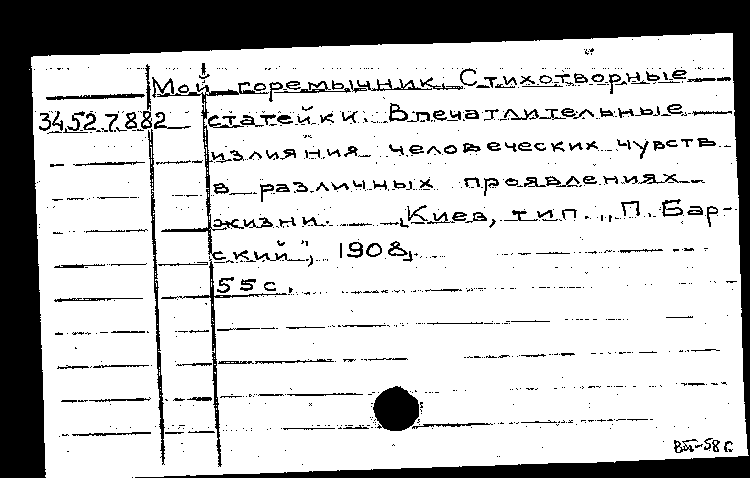 Мой горемычник. Стихотворные
34.52 7.882 статейки. Впечатлительные
излияния человеческих чувств
в различных проявлениях
жизни. Киев, тип. „П. Бар-
ский", 1908.
55 с.